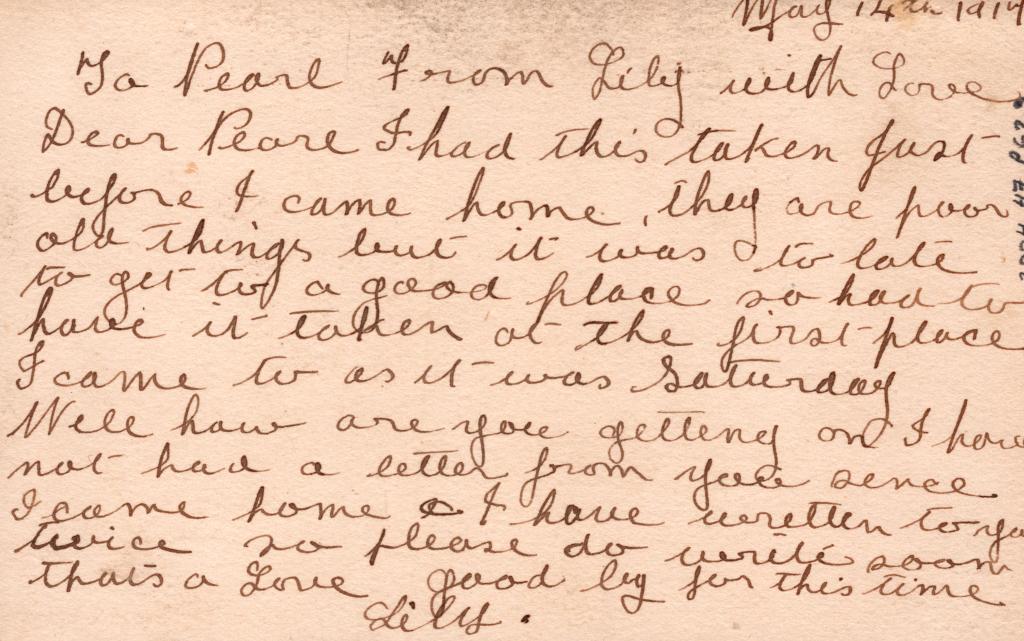 May 14th 191
To Pearl From Lily with Love
Dear Pearl I had this taken Just
before I came home, they are poor
old things but it was to late
to get to a good place so had to
have it taken at the first place
I came to as it was Saturday
Well how are you getteng on I have
not had a letter from you sence
I came home & I have uretten to you
twice so please do write soon
thats a Love good by for this time
Lilly.